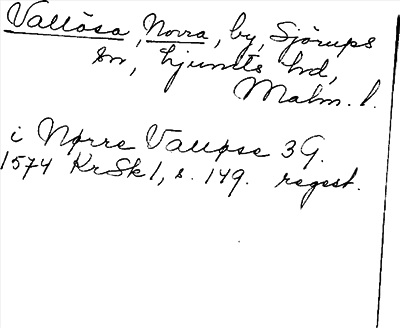 Vallösa, Norra, by, Sjörups
sn, Ljunits hd,
Malm. l.
i Nørre Valløse 3 G.
1574 KrSk 1, s. 149. regest.